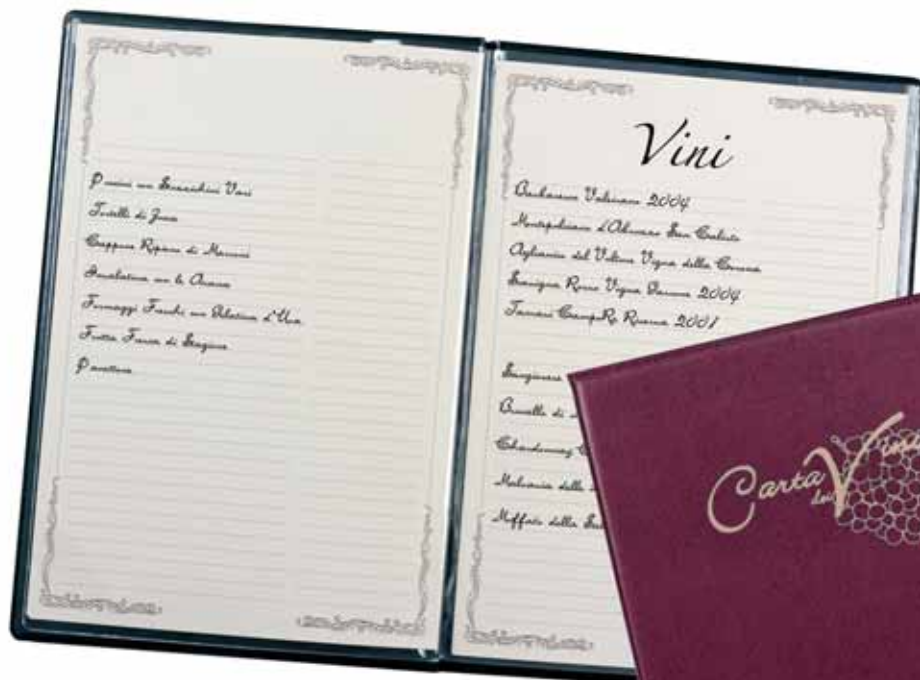 Panini con Stracchini Vari
Tortelli di Zucca
Cappone Ripieno di Marroni
Insalatina con le Arance
Formaggi Freschi con Gelatina d'Uva
Frutta Fresca di Stagione
Panettone
Vini
Barbaresco Valeirano 2004
Montepulciano d'Abruzzo San Calisto
Aglianico del Vulture Vigna della Corona
Rosso Vigna 2004
Taurasi CampoRe Riserva 2001
Sangiovese
Brunello di
Chardonnay
Malvasia delle
Muffato della
Carta
dei Vini